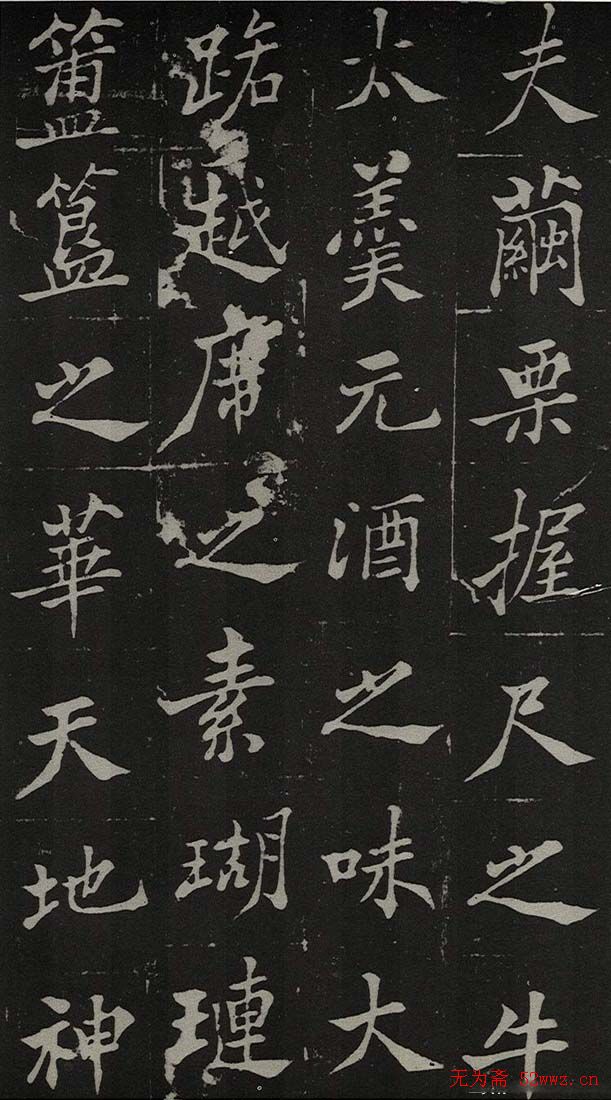 夫繭栗握尺之牛
太羹元酒之味大
路越席之素瑚璉
簠簋之華天地神
无为斋 52wwz.cn